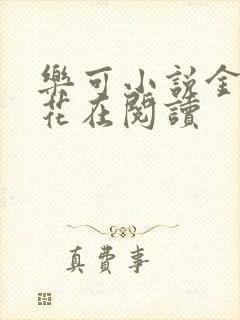 樂可小說金
花在閱讀
真費事